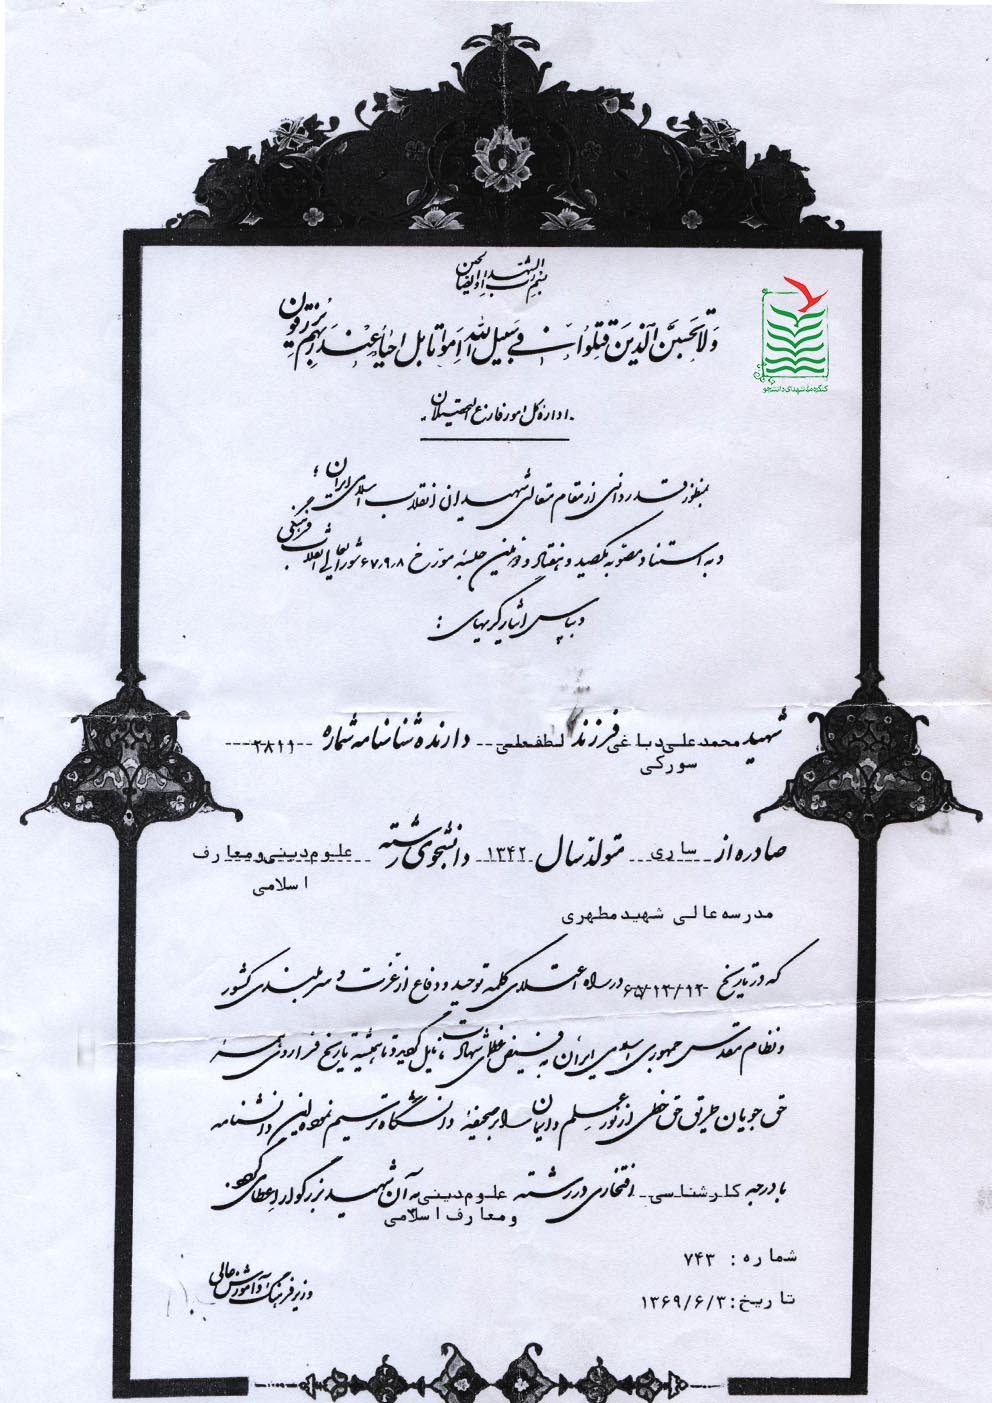 بسم رب الشهداء و الصالحین
وَلا تَحسَبَنَّ الَّذینَ قُتِلُوا فی سَبیلِ اللهِ اَمواتا بَل اَحیاءٌ عِندَ رَبِّهِم یُرزَقُون
کنگره ملی شهدای دانشجو
اداره کل امور فارغ التحصیلان
بمنظور قدردانی از مقام متعالی شهیدان انقلاب اسلامی ایران ؛
و به استناد مصوبه یکصد و هفتاد و دومین جلسه مورخ ۶۷،۹،۸ شورایعالی انقلاب فرهنگی
و بپاس ایثارگریهای :
شهید محمدعلی دباغی فرزند لطفعلی دارنده شناسنامه شماره ۲۸۱۱
سورکی
صادره از ساری متولد سال ۱۳۴۲ دانشجوی رشته علوم دینی و معارف
اسلامی
مدرسه عالی شهید مطهری
که در تاریخ ۶۵/۱۲/۱۲ در راه اعتلای کلمه توحید و دفاع از عزت و سربلندی کشور
و نظام مقدس جمهوری اسلامی ایران به فیض عظمای شهادت نایل گردید و تا همیشه تاریخ فراروی
حق جویان طریق حق خطی از نور علم و ایمان را بر صحیفه دانشگاه ترسیم نموده این دانشنامه
با درجه کارشناسی افتخاری در رشته علوم دینی به آن شهید بزرگوار اعطا میگردد.
و معارف اسلامی
شماره: ۷۴۳
تاریخ: ۱۳۶۹/۶/۳
وزیر فرهنگ و آموزش عالی